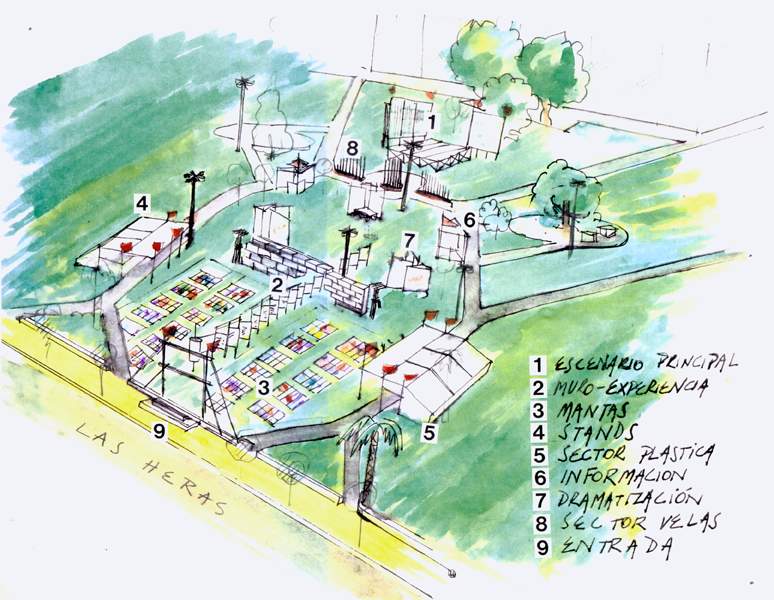 1
8
4
6
7
2
3
5
9
LAS HERAS
1 ESCENARIO PRINCIPAL
2 MURO-EXPERIENCIA
3 MANTAS
4 STANDS
5 SECTOR PLASTICA
6 INFORMACION
7 DRAMATIZACIÓN
8 SECTOR VELAS
9 ENTRADA